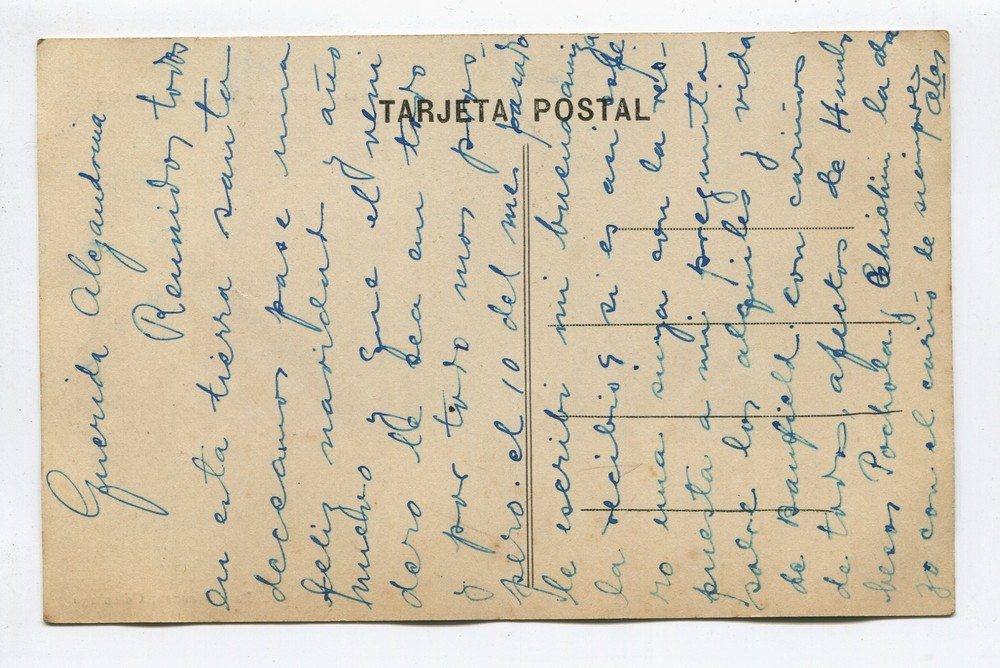 TARJETA POSTAL
Querida Alejandrina
Reunidos todos
en esta tierra santa
deceamos pase una
feliz navidad y año
nuebo Que el veni
dero le sea en todo
y por todo mas pros-
pero. el 10 del mes pasado
le escribi mi buena amiga
la recibio? si es asi espe
ro una suya con la res-
puesta a mi pregunta
sobre los alquileres y vida
de Banfield. con cariños
de todos, afectos de
besos Pochola. Chichin la abra
zo con el cariño de siempre